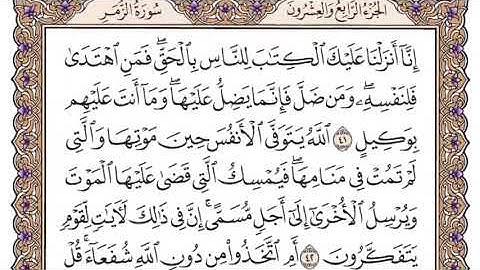 الجزء الرابع والعشرون
سورة الزمر
إِنَّآ أَنزَلْنَا عَلَيْكَ ٱلْكِتَٰبَ لِلنَّاسِ بِٱلْحَقِّۖ فَمَنِ ٱهْتَدَىٰ
فَلِنَفْسِهِۦۖ وَمَن ضَلَّ فَإِنَّمَا يَضِلُّ عَلَيْهَاۖ وَمَآ أَنتَ عَلَيْهِم
بِوَكِيلٍ ٤١ ٱللَّهُ يَتَوَفَّى ٱلْأَنفُسَ حِينَ مَوْتِهَا وَٱلَّتِى
لَمْ تَمُتْ فِى مَنَامِهَاۖ فَيُمْسِكُ ٱلَّتِى قَضَىٰ عَلَيْهَا ٱلْمَوْتَ
وَيُرْسِلُ ٱلْأُخْرَىٰٓ إِلَىٰٓ أَجَلٍ مُّسَمًّىۚ إِنَّ فِى ذَٰلِكَ لَءَايَٰتٍ لِّقَوْمٍ
يَتَفَكَّرُونَ ٤٢ أَمِ ٱتَّخَذُوا۟ مِن دُونِ ٱللَّهِ شُفَعَآءَۚ قُلْ